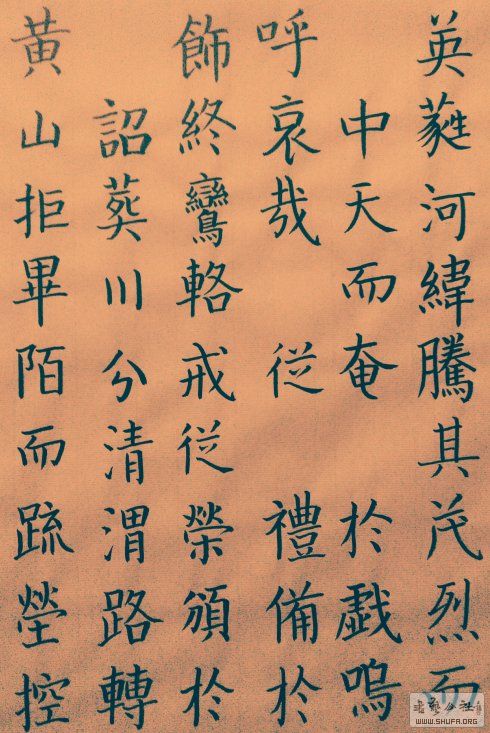 英蕤河緯騰其茂烈而
中天而奄 於戯嗚
呼哀哉 従 禮備於
飾終鸞輅戒従榮頒於
詔葬川分清渭路轉
黄山拒畢陌而疏塋控
WWW.SHUFA.ORG